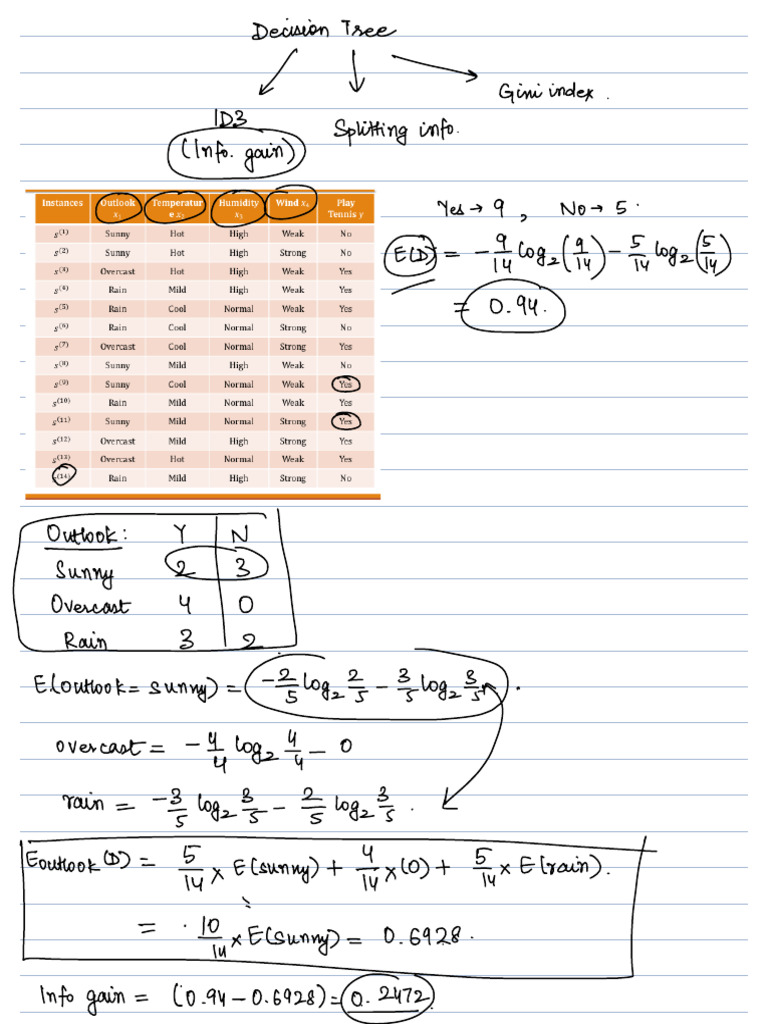 Decision Tree
ID3
(Info. gain)
Splitting info.
Gini index.
Instances Outlook x₁ Temperature x₂ Humidity x₃ Wind x₄ Play Tennis y
s⁽¹⁾ Sunny Hot High Weak No
s⁽²⁾ Sunny Hot High Strong No
s⁽³⁾ Overcast Hot High Weak Yes
s⁽⁴⁾ Rain Mild High Weak Yes
s⁽⁵⁾ Rain Cool Normal Weak Yes
s⁽⁶⁾ Rain Cool Normal Strong No
s⁽⁷⁾ Overcast Cool Normal Strong Yes
s⁽⁸⁾ Sunny Mild High Weak No
s⁽⁹⁾ Sunny Cool Normal Weak Yes
s⁽¹⁰⁾ Rain Mild Normal Weak Yes
s⁽¹¹⁾ Sunny Mild Normal Strong Yes
s⁽¹²⁾ Overcast Mild High Strong Yes
s⁽¹³⁾ Overcast Hot Normal Weak Yes
s⁽¹⁴⁾ Rain Mild High Strong No
Yes → 9 , No → 5.
E(D) = -9/14 log₂(9/14) - 5/14 log₂(5/14)
= 0.94.
Outlook: Y N
Sunny 2 3
Overcast 4 0
Rain 3 2
E(outlook = sunny) = -2/5 log₂ 2/5 - 3/5 log₂ 3/5 .
overcast = -4/4 log₂ 4/4 - 0
rain = -3/5 log₂ 3/5 - 2/5 log₂ 3/5 .
Eoutlook(D) = 5/14 × E(sunny) + 4/14 × (0) + 5/14 × E(rain).
= 10/14 × E(sunny) = 0.6928.
Info gain = (0.94 - 0.6928) = 0.2472